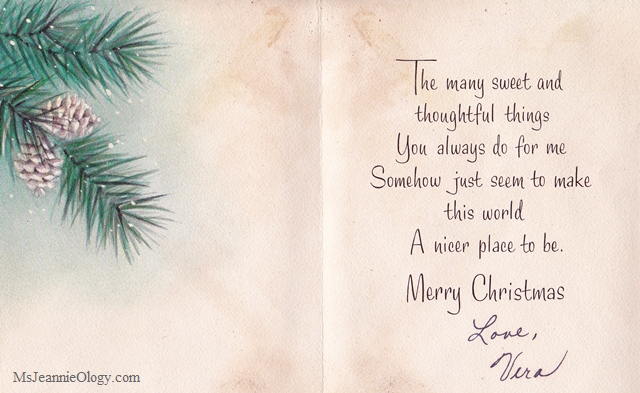 The many sweet and
thoughtful things
You always do for me
Somehow just seem to make
this world
A nicer place to be.
Merry Christmas
Love,
Vera
MsJeannieOlogy.com